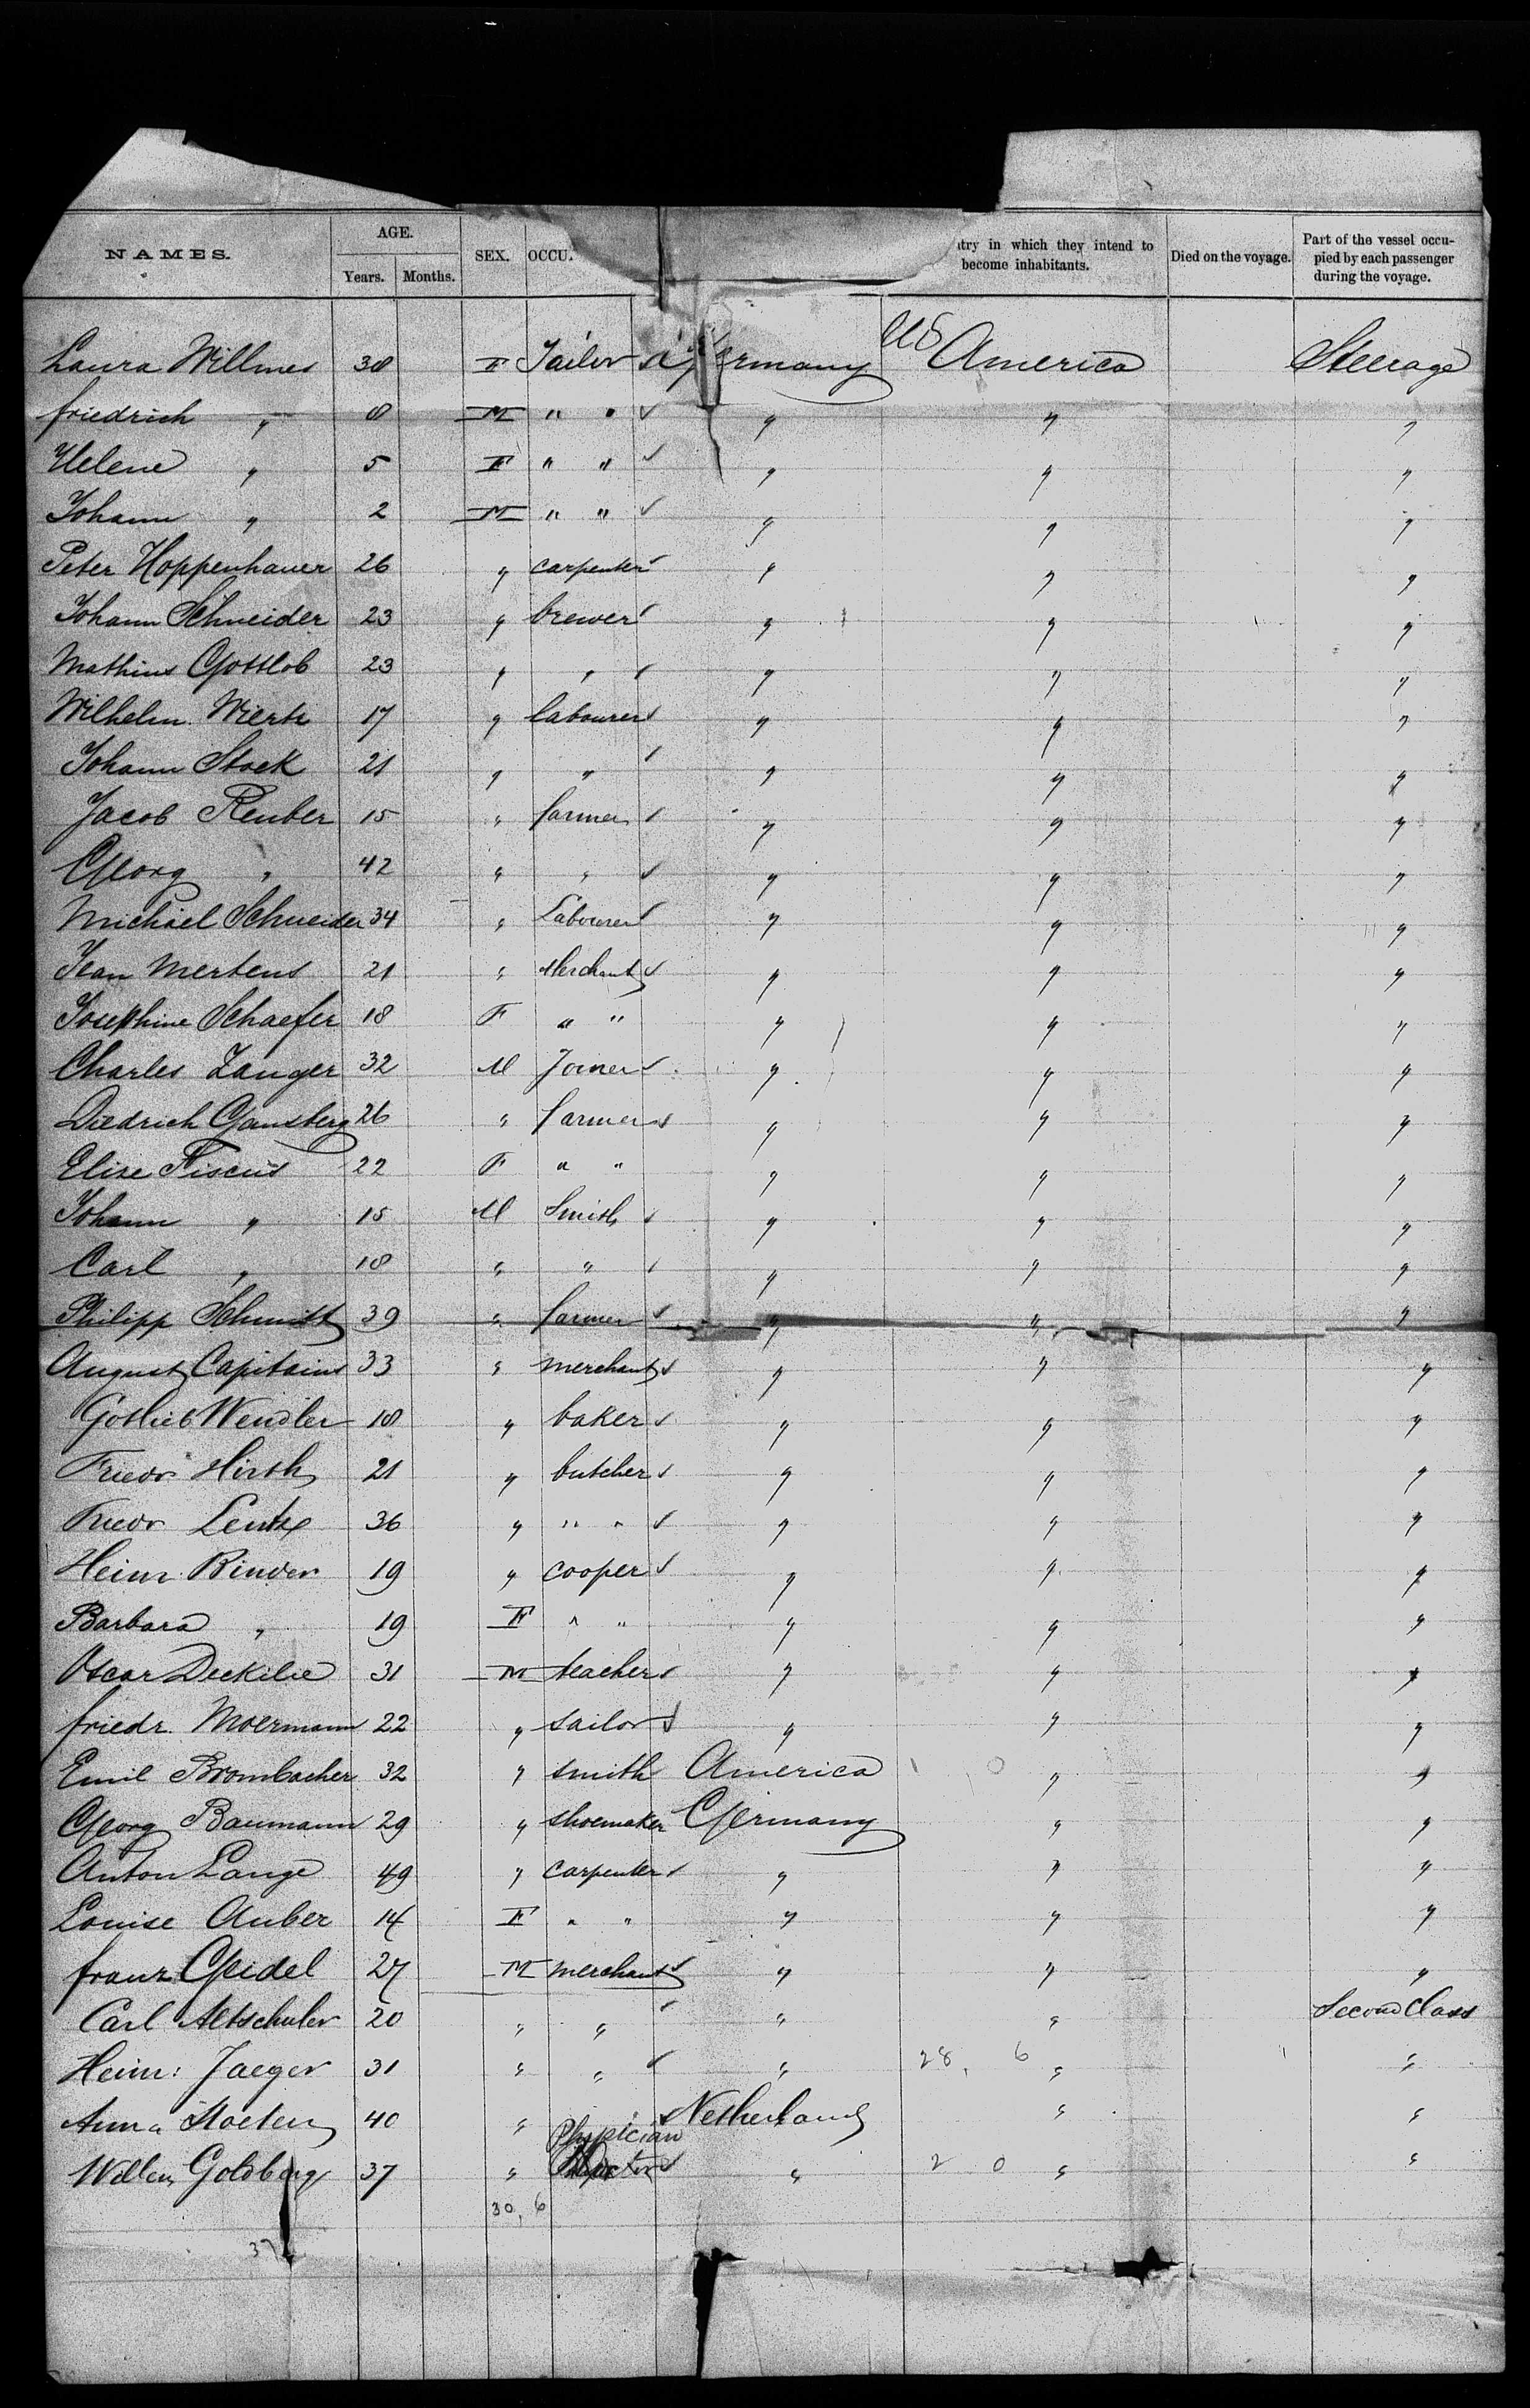 NAMES. AGE. SEX. OCCU. try in which they intend to become inhabitants. Died on the voyage. Part of the vessel occupied by each passenger during the voyage.
Years. Months.
Laura Willmes 38 F Tailor Germany US America Steerage
friedrich " 8 M " " " " "
Helene " 5 F " " " " "
Johann " 2 M " " " " "
Peter Hoppenhauer 26 " carpenter " " "
Johann Schneider 23 " brewer " " "
Mathius Gottlob 23 " " " " "
Wilhelm Wiertz 17 " labourer " " "
Johann Stock 21 " " " " "
Jacob Reuber 15 " farmer " " "
Georg " 42 " " " " "
Michael Schneider 34 " Labourer " " "
Jean Mertens 21 " Merchant " " "
Josephine Schaefer 18 F " " " " "
Charles Zanger 32 M Joiner " " "
Diedrich Gansberg 26 " farmer " " "
Elise Fiscus 22 F " " " " "
Johann " 15 M Smith " " "
Carl " 18 " " " " "
Philipp Schmitt 39 " farmer " " "
August Capitains 33 " merchant " " "
Gotlieb Wendler 18 " baker " " "
Friedr Hirth 21 " butcher " " "
Friedr Lentz 36 " " " " " "
Heinr. Binder 19 " cooper " " "
Barbara " 19 F " " " " "
Oscar Deckilie 31 M teacher " " "
friedr. Moermann 22 " sailor " " "
Emil Brombacher 32 " smith America 1 0 " "
Georg Baumann 29 " shoemaker Germany " "
Anton Lange 49 " carpenter " " "
Louise Auber 14 F " " " " "
franz Geidel 27 M merchant " " "
Carl Altschuler 20 " " " " Second Class
Heinr: Jaeger 31 " " " 28, 6 " "
Anna 40 " Netherland " "
Physician
Willem Goldberg 37 " " 2 0 " "
30, 6